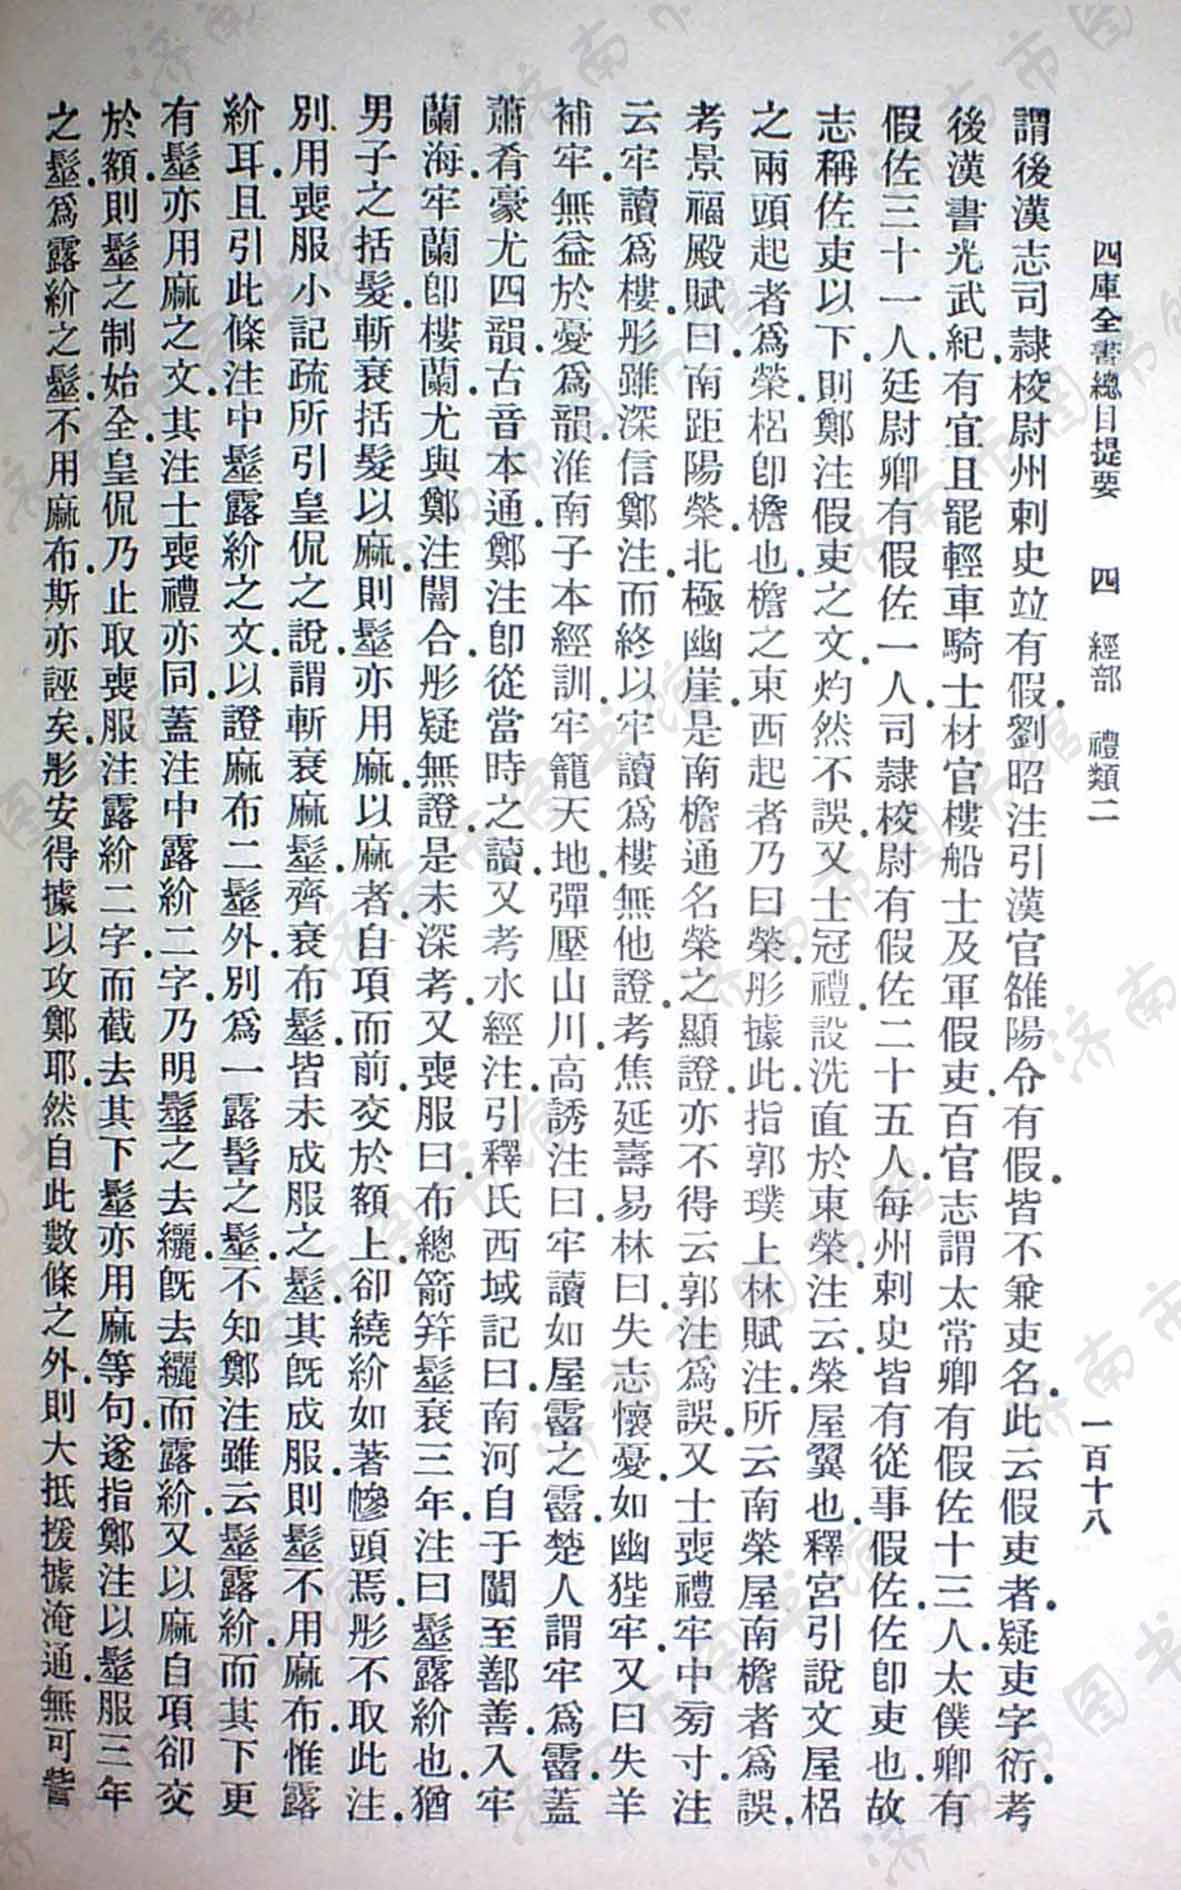 四庫全書總目提要　四　經部　禮類二　一百十八
謂後漢志司隸校尉州刺史竝有假劉昭注引漢官雒陽令有假皆不兼吏名此云假吏者疑吏字衍考
後漢書光武紀有宜且罷輕車騎士材官樓船士及軍假吏百官志謂太常卿有假佐十三人太僕卿有
假佐三十一人廷尉卿有假佐一人司隸校尉有假佐二十五人每州刺史皆有從事假佐佐卽吏也故
志稱佐吏以下則鄭注假吏之文灼然不誤又士冠禮設洗直於東榮注云榮屋翼也釋宮引說文屋梠
之兩頭起者爲榮梠卽檐也檐之東西起者乃曰榮彤據此指郭璞上林賦注所云南榮屋南檐者爲誤
考景福殿賦曰南距陽榮北極幽崖是南檐通名榮之顯證亦不得云郭注爲誤又士喪禮牢中旁寸注
云牢讀爲樓彤雖深信鄭注而終以牢讀爲樓無他證考焦延壽易林曰失志懷憂如幽狴牢又曰失羊
補牢無益於憂爲韻淮南子本經訓牢籠天地彈壓山川高誘注曰牢讀如屋霤之霤楚人謂牢爲霤蓋
蕭肴豪尤四韻古音本通鄭注卽從當時之讀又考水經注引釋氏西域記曰南河自于闐至鄯善入牢
蘭海牢蘭卽樓蘭尤與鄭注闇合彤疑無證是未深考又喪服曰布總箭筓髽衰三年注曰髽露紒也猶
男子之括髮斬衰括髮以麻則髽亦用麻以麻者自項而前交於額上卻繞紒如著幓頭焉彤不取此注
別用喪服小記疏所引皇侃之說謂斬衰麻髽齊衰布髽皆未成服之髽其旣成服則髽不用麻布惟露
紒耳且引此條注中髽露紒之文以證麻布二髽外別爲一露髻之髽不知鄭注雖云髽露紒而其下更
有髽亦用麻之文其注士喪禮亦同蓋注中露紒二字乃明髽之去纚旣去纚而露紒又以麻自項卻交
於額則髽之制始全皇侃乃止取喪服注露紒二字而截去其下髽亦用麻等句遂指鄭注以髽服三年
之髽爲露紒之髽不用麻布斯亦誣矣彤安得據以攻鄭耶然自此數條之外則大抵援據淹通無可訾